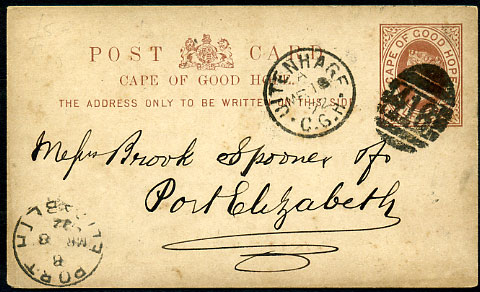 POST CARD
CAPE OF GOOD HOPE
THE ADDRESS ONLY TO BE WRITTEN ON THIS SIDE
CAPE OF GOOD HOPE
UITENHAGE
C.G.H.
Messrs Brook Spooner &Co
Port Elizabeth
PORT ELIZABETH
8
MR 8
92